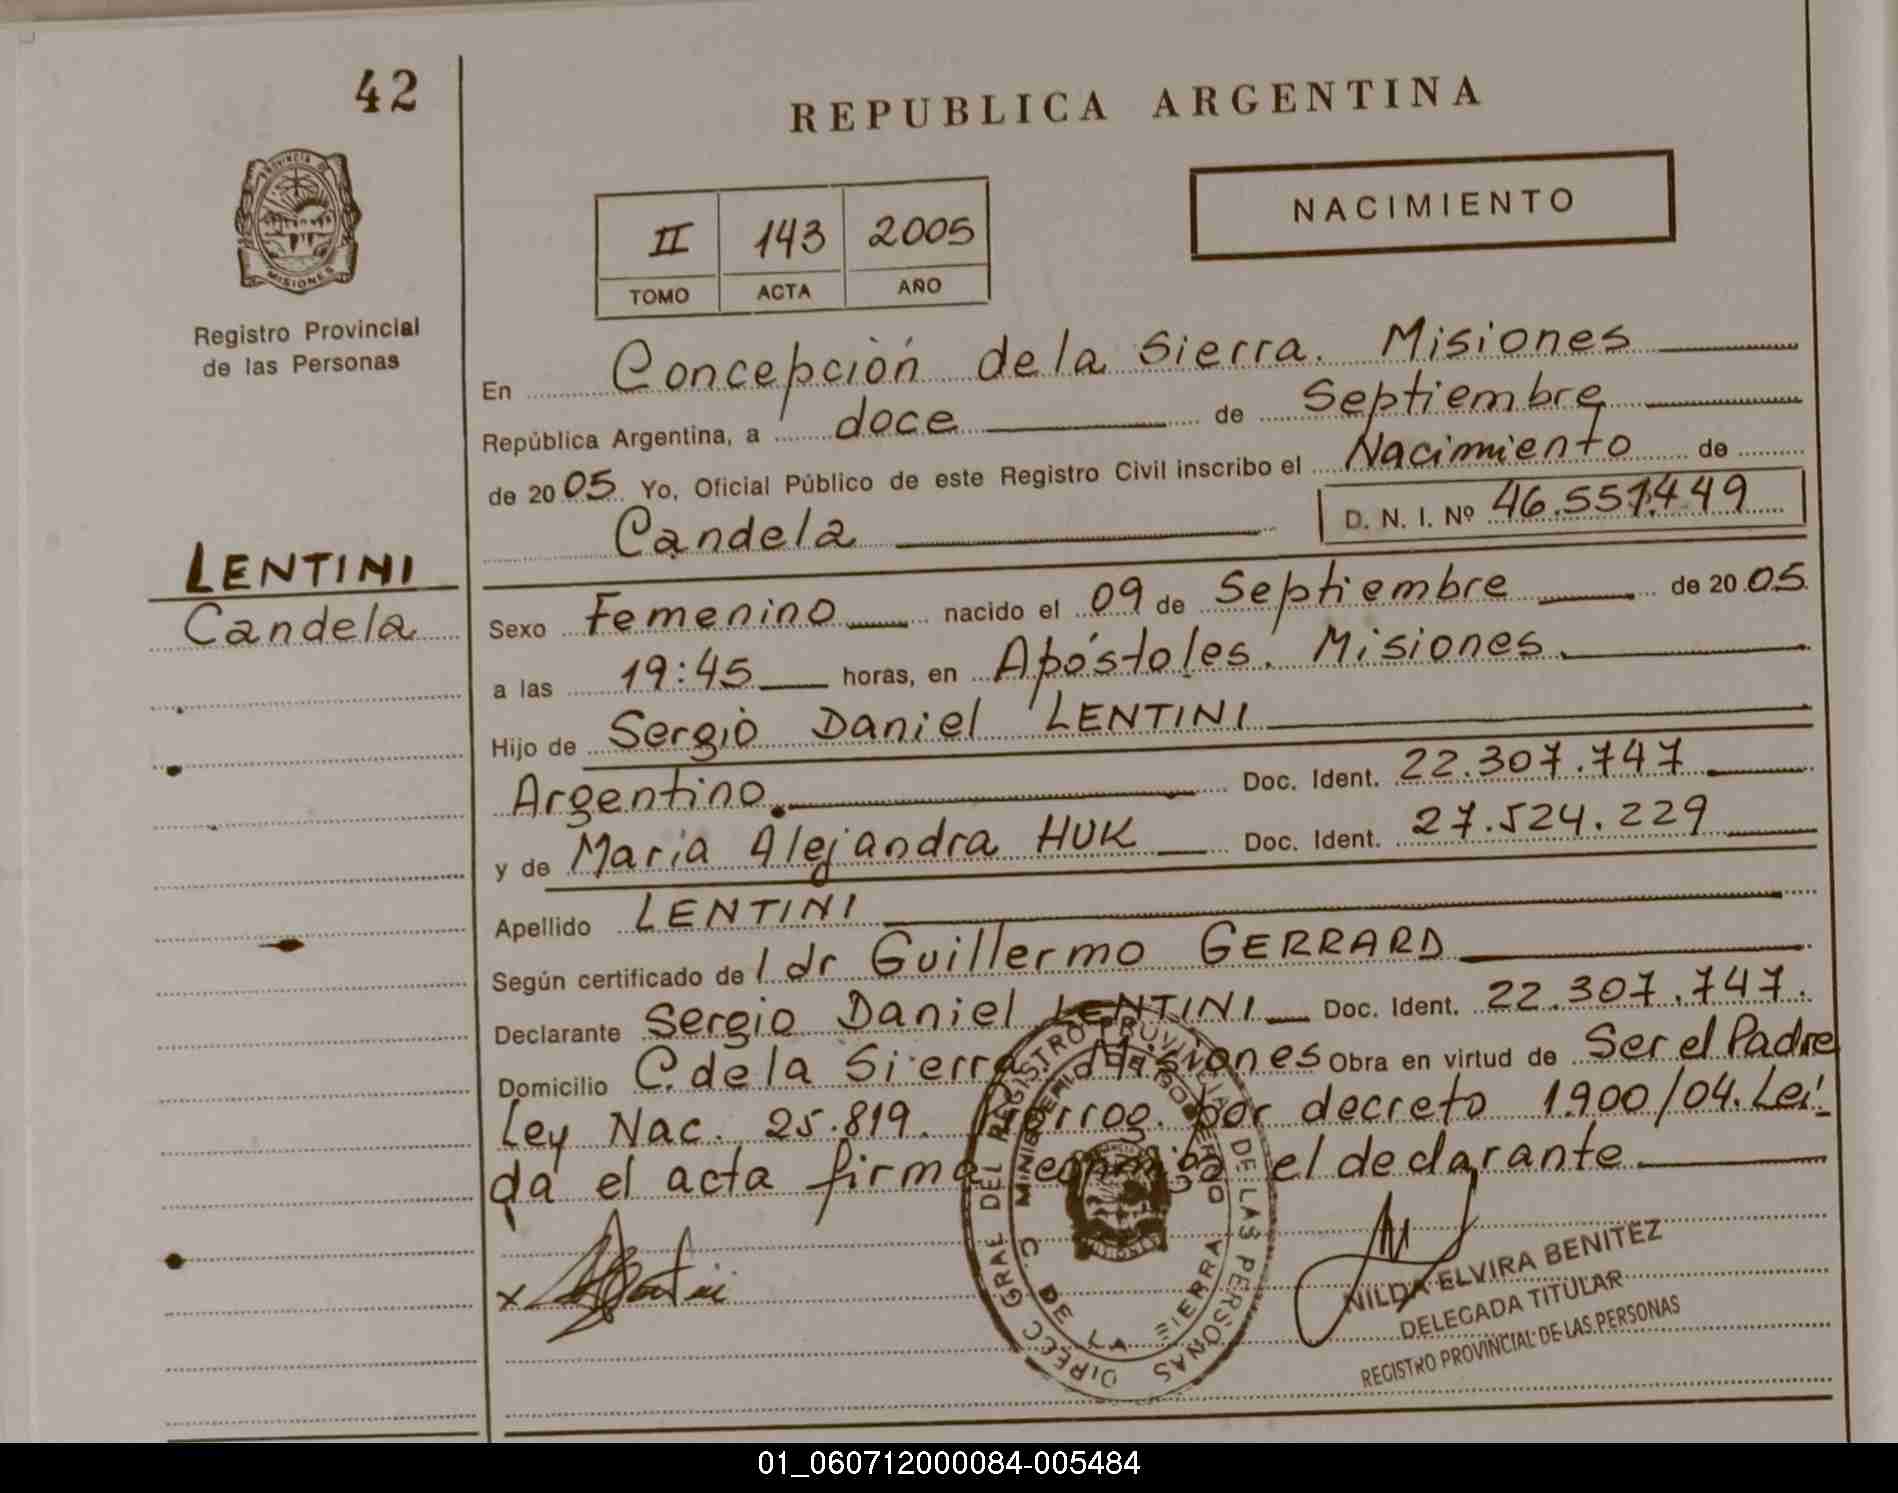 42
REPUBLICA ARGENTINA
PROVINCIA DE
MISIONES
Registro Provincial
de las Personas
NACIMIENTO
II 143 2005
TOMO ACTA AÑO
En Concepción de la Sierra. Misiones
República Argentina, a doce de Septiembre
de 2005 Yo, Oficial Público de este Registro Civil inscribo el Nacimiento de
Candela
D. N. I. Nº 46.557.449
LENTINI
Candela
Sexo Femenino nacido el 09 de Septiembre de 2005
a las 19:45 horas, en Apóstoles. Misiones.
Hijo de Sergio Daniel LENTINI
Argentino. Doc. Ident. 22.307.747
y de Maria Alejandra HUK Doc. Ident. 27.524.229
Apellido LENTINI
Según certificado de l dr Guillermo GERRARD
Declarante Sergio Daniel LENTINI Doc. Ident. 22.307.747.
Domicilio C. de la Sierra Misiones Obra en virtud de Ser el Padre
Ley Nac. 25.819. Prorrog. por decreto 1.900/04. Lei
da el acta firma conmigo el declarante
DIRECC GRAL DEL REGISTRO PROVINCIAL DE LAS PERSONAS
MINISTERIO DE GOBIERNO
C. DE LA SIERRA
NILDA ELVIRA BENITEZ
DELEGADA TITULAR
REGISTRO PROVINCIAL DE LAS PERSONAS
01_060712000084-005484